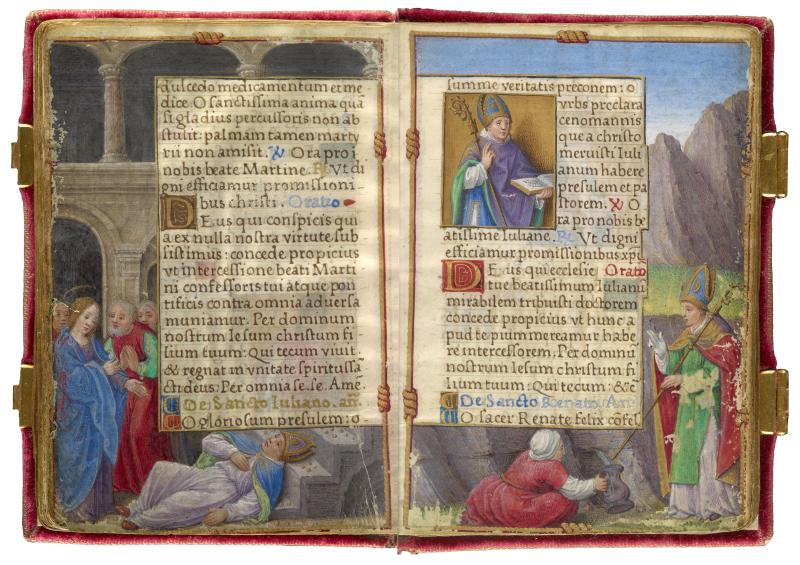 dulcedo medicamentum et me
dice. O sanctissima anima quā
si gladius percussoris non ab
stulit: palmam tamen marty
rii non amisit. ℣ Ora pro i
nobis beate Martine. ℟. Vt di
gni efficiamur promissioni-
bus christi. Oratio
DEus qui conspicis qui
a ex nulla nostra virtute sub
sistimus: concede propicius
vt intercessione beati Marti
ni confessoris tui atque pon
tificis contra omnia aduersa
muniamur. Per dominum
nostrum Iesum christum fi
lium tuum: Qui tecum viuit.
& regnat in vnitate spiritus sā
cti deus. Per omnia se. se. Amē.
De Sancto Iuliano. an.
O gloriosum presulem: o
summe veritatis preconem: o
vrbs preclara
cenomannis
que a christo
meruisti Iuli
anum habere
presulem et pa
storem. ℣ O
ra pro nobis be
atissime Iuliane. ℟. Vt digni
efficiamur promissionibus xpi.
DEus qui ecclesie Oratō
tue beatissimum Iulianū
mirabilem tribuisti doctorem
concede propicius vt hunc a
pud te pium mereamur habe
re intercessorem. Per dominū
nostrum Iesum christum fi
lium tuum: Qui tecum: &c̄
De Sancto Renato An
O sacer Renate felix cōfes